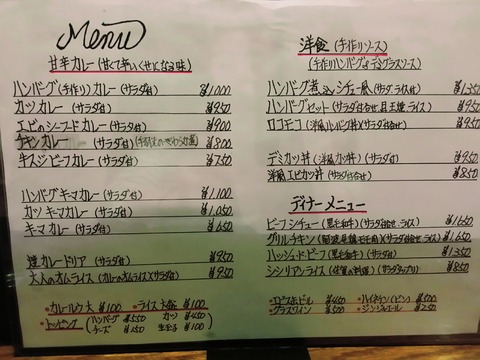 Menu
甘辛カレー (甘くて辛い、くせになる味)
ハンバーグ(手作り)カレー(サラダ付) ¥1,000
カツカレー (サラダ付) ¥950
エビのシーフードカレー(サラダ付) ¥900
チキンカレー (サラダ付) ¥800
牛スジビーフカレー(サラダ付) ¥750
ハンバーグキーマカレー(サラダ付) ¥1,100
カツキーマカレー(サラダ付) ¥1,050
キーマカレー (サラダ付) ¥650
焼カレードリア(サラダ付) ¥950
大人のオムライス(カレーのオムライス)(サラダ付) ¥950
・カレールウ大 ¥100 ・ライス大盛 ¥100
・トッピング (ハンバーグ ¥550 カツ ¥450
チーズ ¥150 生玉子 ¥100)
洋食 (手作りソース)
(手作りハンバーグ、デミグラスソース)
ハンバーグ煮込シチュー風(サラダ、ライス付)
ハンバーグセット(サラダ付合せ、目玉焼、ライス) ¥950
ロコモコ (洋風ハンバーグ丼)(サラダ付) ¥950
デミカツ丼 (洋風カツ丼)(サラダ付) ¥950
洋風エビカツ丼 (サラダ付合せ) ¥850
ディナーメニュー
ビーフシチュー(黒毛和牛)(サラダ付合せ、ライス) ¥1,650
グリルチキン ¥1,650
ハッシュドビーフ(黒毛和牛)(ライス) ¥1,350
シシリアンライス(佐賀の料理)(サラダタップリ) ¥850
¥450 ・ハイネケン(ビン) ¥500
・グラスワイン ¥500 ・ジンジャエール ¥250